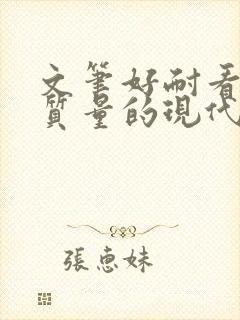 文筆好耐看
質量的現代
張惠妹